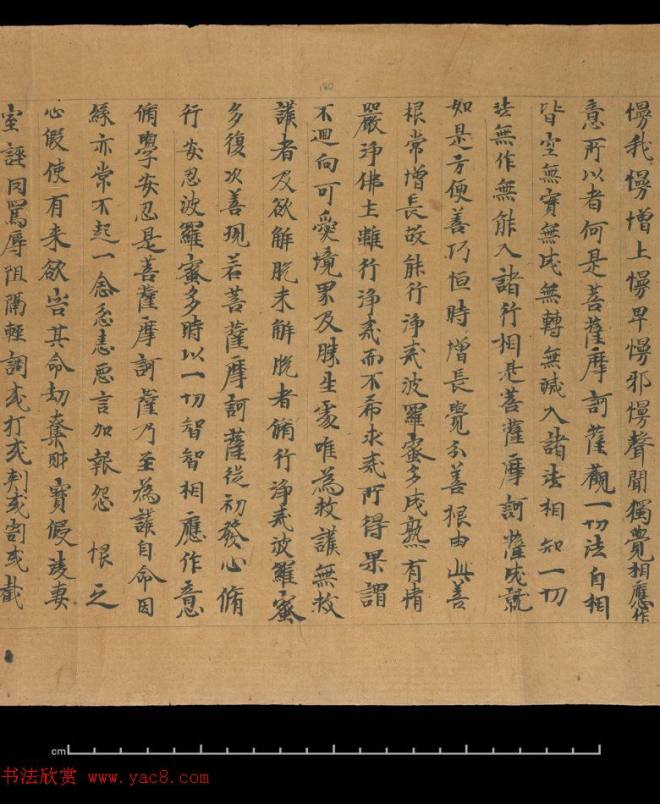 慢我慢增上慢卑慢邪慢聲聞獨覺相應作
意所以者何是菩薩摩訶薩觀一切法自相
皆空無實無成無轉無滅入諸法相知一切
法無作無能入諸行相是菩薩摩訶薩成就
如是方便善巧恒時增長覺分善根由此善
根常增長故能行淨戒波羅蜜多成熟有情
嚴淨佛土雖行淨戒而不希求戒所得果謂
不迴向可愛境界及勝生處唯為救護無救
護者及欲解脫未解脫者脩行淨戒波羅蜜
多復次善現若菩薩摩訶薩從初發心脩
行安忍波羅蜜多時以一切智智相應作意
脩學安忍是菩薩摩訶薩乃至為護自命因
緣亦常不起一念忿恚惡言加報怨恨之
心假使有來欲害其命劫奪財寶假淩妻
室誣罔罵辱阻隔輕調或打或刺或割或截
180
cm
书法欣赏 www.yac8.com